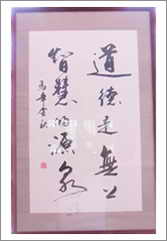 道德是無上
智慧的源泉